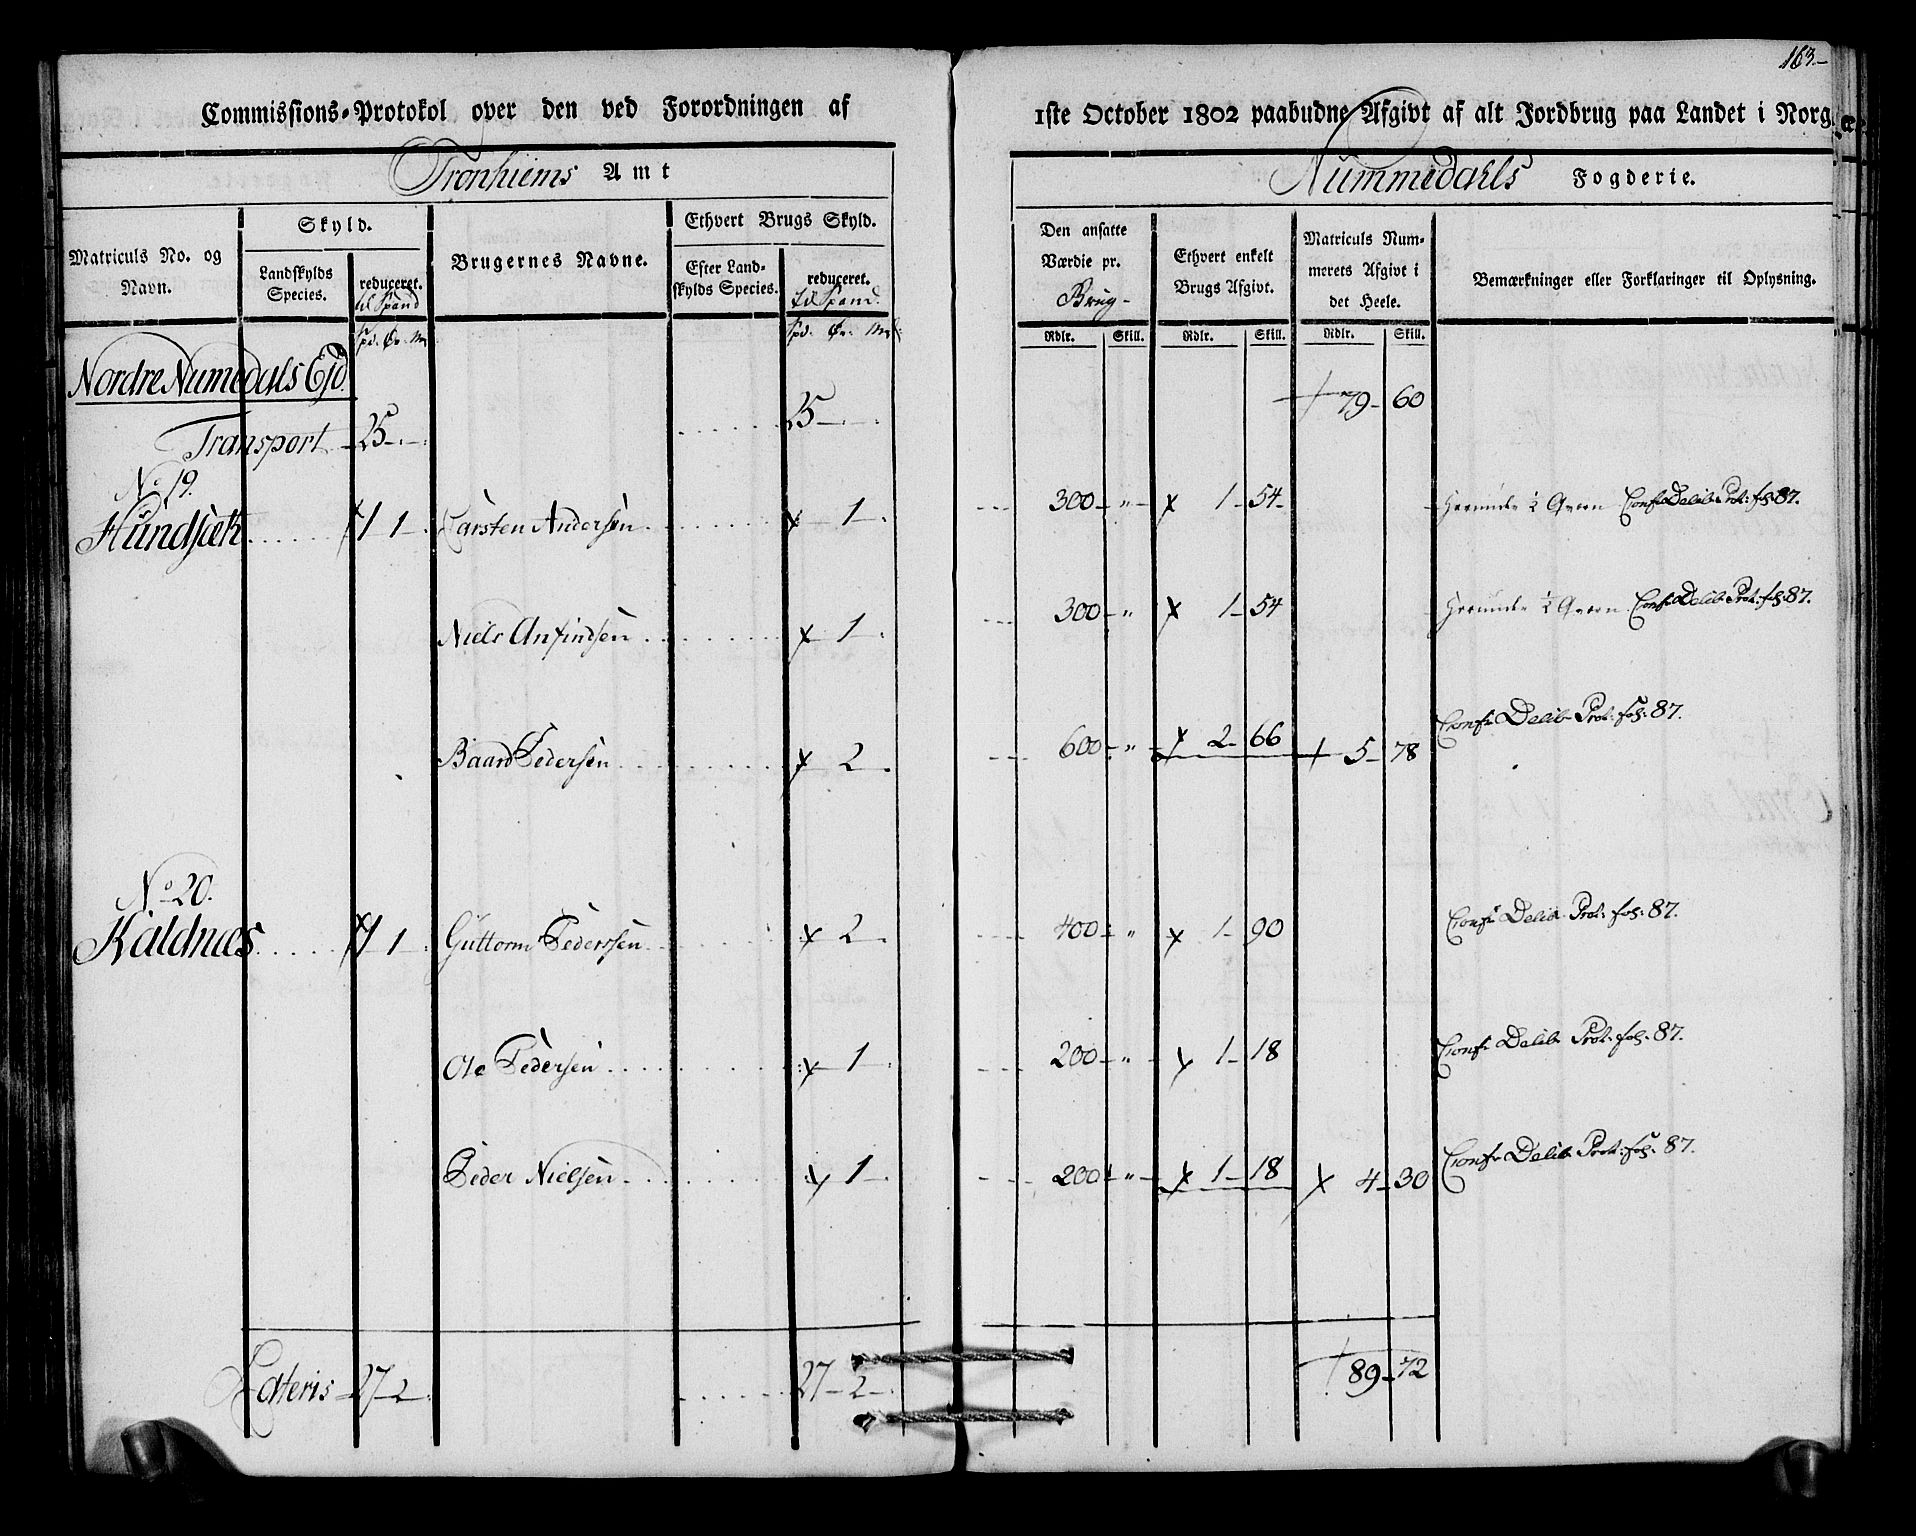 163.
Commissions-Protokol over den ved Forordningen af 1ste October 1802 paabudne Afgivt af alt Jordbrug paa Landet i Norge
Tronhiems Amt Nummedahls Fogderie.
Matriculs No. og Navn. Skyld. Landskylds Species. reduceret. til Spand Brugernes Navne. Ethvert Brugs Skyld. Efter Landskylds Species. reduceret. til Spand. Den ansatte Værdie pr. Brug- Ethvert enkelt Brugs Afgivt. Matriculs Nummerets Afgivt i det Heele. Bemærkninger eller Forklaringer til Oplysning.
Spd. Ør. Mk Spd. Ør. Mk. Rdlr. Skill. Rdlr. Skill. Rdlr. Skill.
Nordre Numedals Ejd.
Transport 25 25 79 60
No 19.
Hundsæk 1 1 Carsten Andersen 1 300 " 1 54 ½ Qvern Confr Delib Prot: fol: 87.
Niels Anfindsen 1 300 " 1 54 ½ Qvern Confr Delib Prot: fol: 87.
Baard Pedersen 2 600 " 2 66 5 78 Confr Delib Prot: fol: 87.
No 20.
Kaldnæs 1 1 Guttorm Pederssen 2 400 " 1 90 Confr Delib Prot: fol: 87.
Ole Pedersen 1 200 " 1 18 Confr Delib Prot: fol: 87.
Peder Nielsen 1 200 " 1 18 4 30 Confr Delib Prot: fol: 87.
Lateris 27 2 27 2 89 72